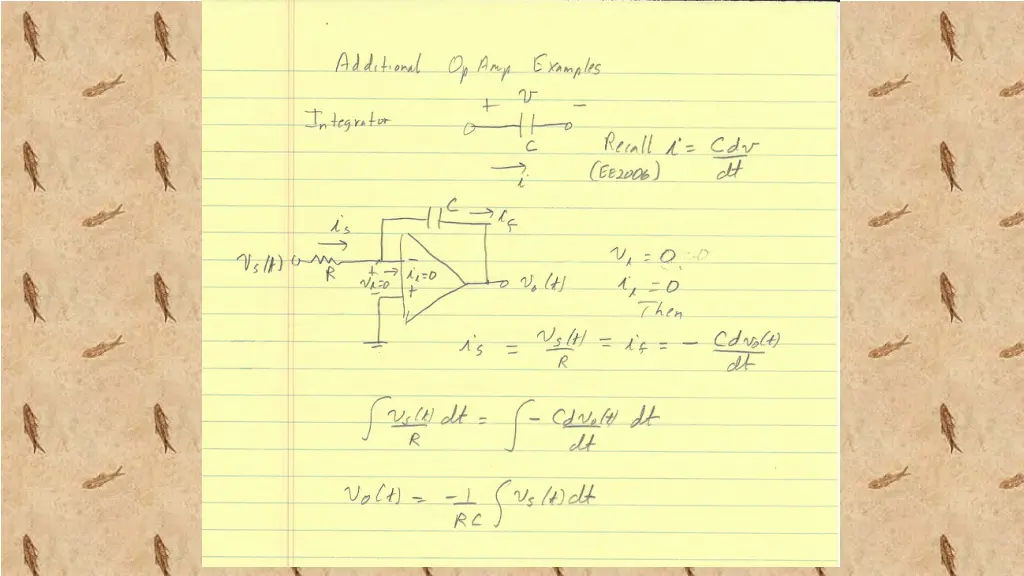 Additional Op Amp Examples
+ v −
Integrator
C
Recall i = C dv/dt
(EE2006)
i
C
i_f
i_s
v_s(t)
R
+ v_1=0 −
i_1=0
−
+
v_o(t)
v_1 = 0
i_1 = 0
Then
i_s = v_s(t)/R = i_f = − C dv_o(t)/dt
∫ v_s(t)/R dt = ∫ − C dv_o(t)/dt dt
v_o(t) = −1/RC ∫ v_s(t) dt